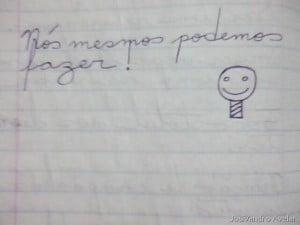 Nós mesmos podemos
fazer!